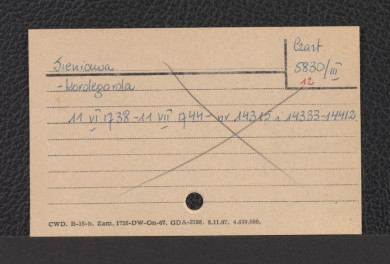 Czart
Sieniawa 5830/III
12
-Kordegarda
11 VI 1738-11 VII 1744- nr 14315 i 14333-14412
CWD. B-15-b. Zam. 1728-DW-On-67. GDA-2186. 8.11.67. 4.620.000.